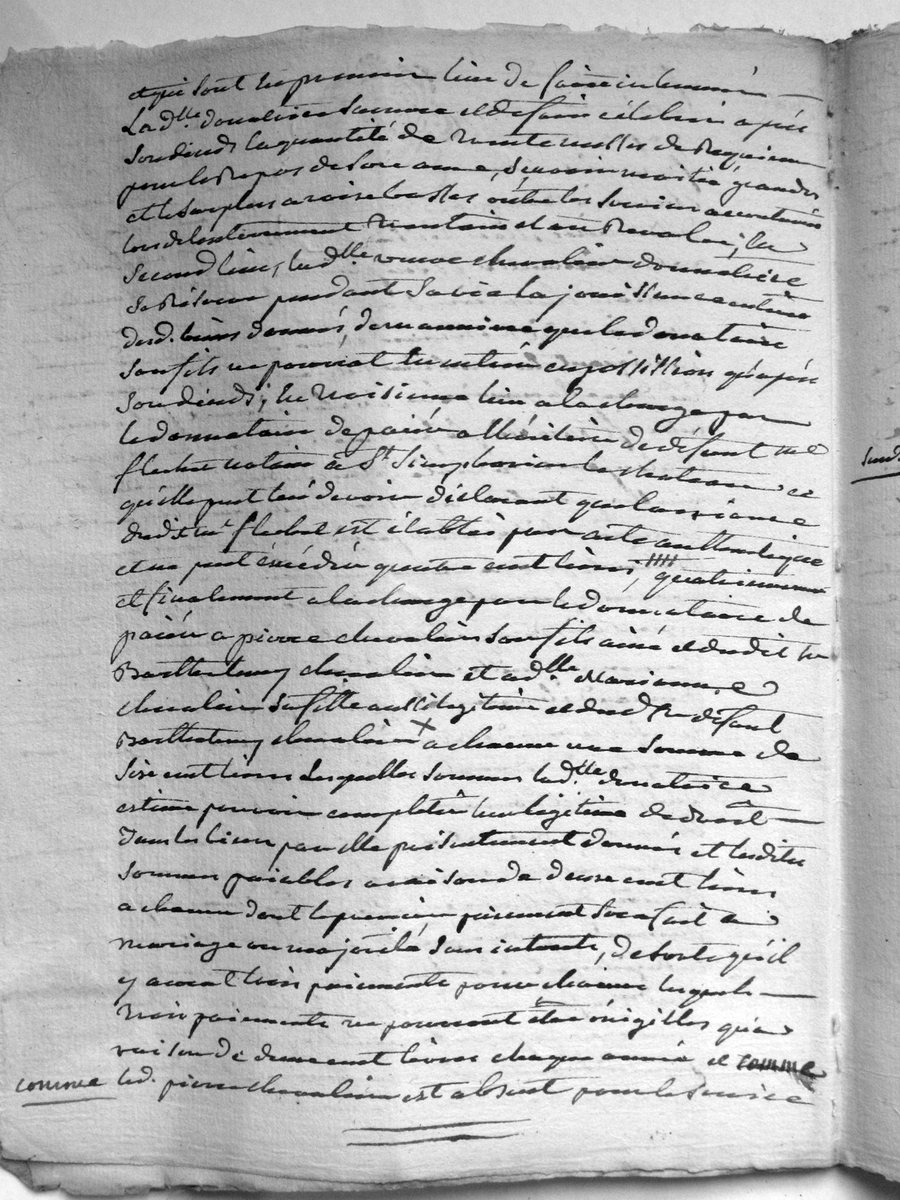 et qui sont en premier lieu de faire inhumer
La d.lle donatrice sa mere et de faire célébrer après
son décéds la quantité de trente messes de Requiem
pour le Repos de son ame, savoir moitié grandes
et le surplus a voix basses outre les services accoutumés
lors de l'enterrement trentain et au Revalai, en
second lieu, la d.lle veuve chevalier donnatrice
se Réserve pendant sa vie la jouissance entière
desd. biens donnés de maniere que le donnataire
son fils ne pourrat en entrer en possession qu'après
son décéds; en troisieme lieu a la charge par
le donnataire de paiér a l'héritiere de défunt me
flechet notaire à St. Simphorien le chateau ce
qu'elle peut lui devoir déclarant que la créance
dudit me. flechet est établie par acte authentique
et ne peut éxcédér quatre cent livres, quatriemement
et finalement a la charge par le donnataire de
paiér a pierre chevalier son fils ainé et dudit feu
Barthelemy chevalier et a d.lle Marianne
chevalier sa fille aussi légitime et dud. feu défunt
Barthelemy chevalier × a chacun une somme de
Six cent livres lesquelles sommes la d.lle donatrice
estime pouvoir completter leur légitime de droit
dans les biens par elle présentement donnés et lesdites
sommes paiables a raison de deux cent livres
a chacun dont le premier paiement sera fait a
mariage ou majorité sans intérets, de sorte qu'il
y aurat trois paiements pour chacun lesquels
trois paiements ne pourront être éxigibles qu'a
raison de deux cent livres chaque année et comme
comme led. pierre chevalier est absent pour le service